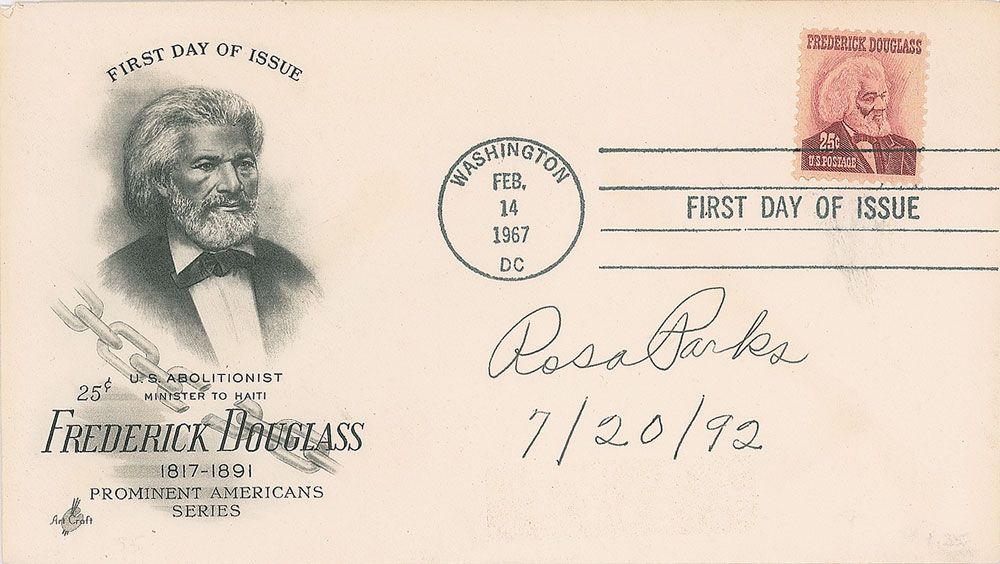 FIRST DAY OF ISSUE
25¢
U.S. ABOLITIONIST
MINISTER TO HAITI
FREDERICK DOUGLASS
1817-1891
PROMINENT AMERICANS
SERIES
Art Craft
WASHINGTON
FEB.
14
1967
DC
FREDERICK DOUGLASS
25¢
U.S. POSTAGE
FIRST DAY OF ISSUE
Rosa Parks
7/20/92